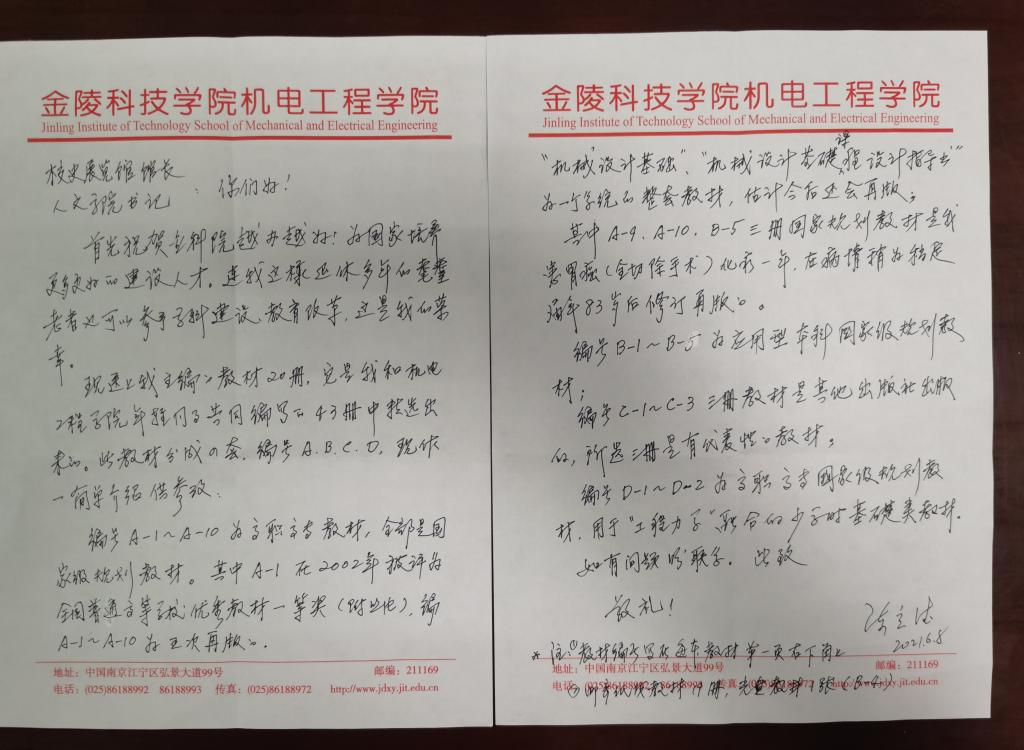 金陵科技学院机电工程学院
Jinling Institute of Technology School of Mechanical and Electrical Engineering
校史展览馆馆长
人文学院书记 : 你们好！
首先祝贺金科院越办越好！为国家培养
更多更好的建设人才。连我这样退休多年的耄耋
老者也可以参予学科建设、教育改革，这是我的荣
幸。
现送上我主编的教材20册，它是我和机电
工程学院年轻同事共同编写的43册中精选出
来的。此教材分成四套，编号A.B.C.D，现作
一简单介绍供参考：
编号A-1～A-10为高职高专教材，全部是国
家级规划教材。其中A-1在2002年被评为
全国普通高等学校优秀教材一等奖（附证书），编
A-1～A-10为五次再版。
地址：中国南京江宁区弘景大道99号 邮编：211169
电话：(025)86188992 86188993 传真：(025)86188972 http://www.jdxy.jit.edu.cn
金陵科技学院机电工程学院
Jinling Institute of Technology School of Mechanical and Electrical Engineering
"机械设计基础"、"机械设计基礎课程设计指导书"
为一个系统的整套教材，估计今后还会再版；
其中A-9、A-10、B-5三册国家规划教材是我
患胃癌（全切除手术）化疗一年，在病情稍为稳定
83岁后修订再版的。
编号B-1～B-5为应用型本科国家级规划教
材；
编号C-1～C-3三册教材是其他出版社出版
的，所选三册是有代表性的教材。
编号D-1～D-2为高职高专国家级规划教
材，用于"工程力学"联合的少学时基礎类教材。
如有问题可联系。此致
敬礼！
陈立德
2021.6.8
*注：①教材编号写在每本教材第一页右下角上
地址：中国南京江宁区弘景大道99号 邮编：211169
电话：(025)86188992 86188993 传真：(025)86188972 http://www.jdxy.jit.edu.cn
②教材19册，教材1张（B-4）